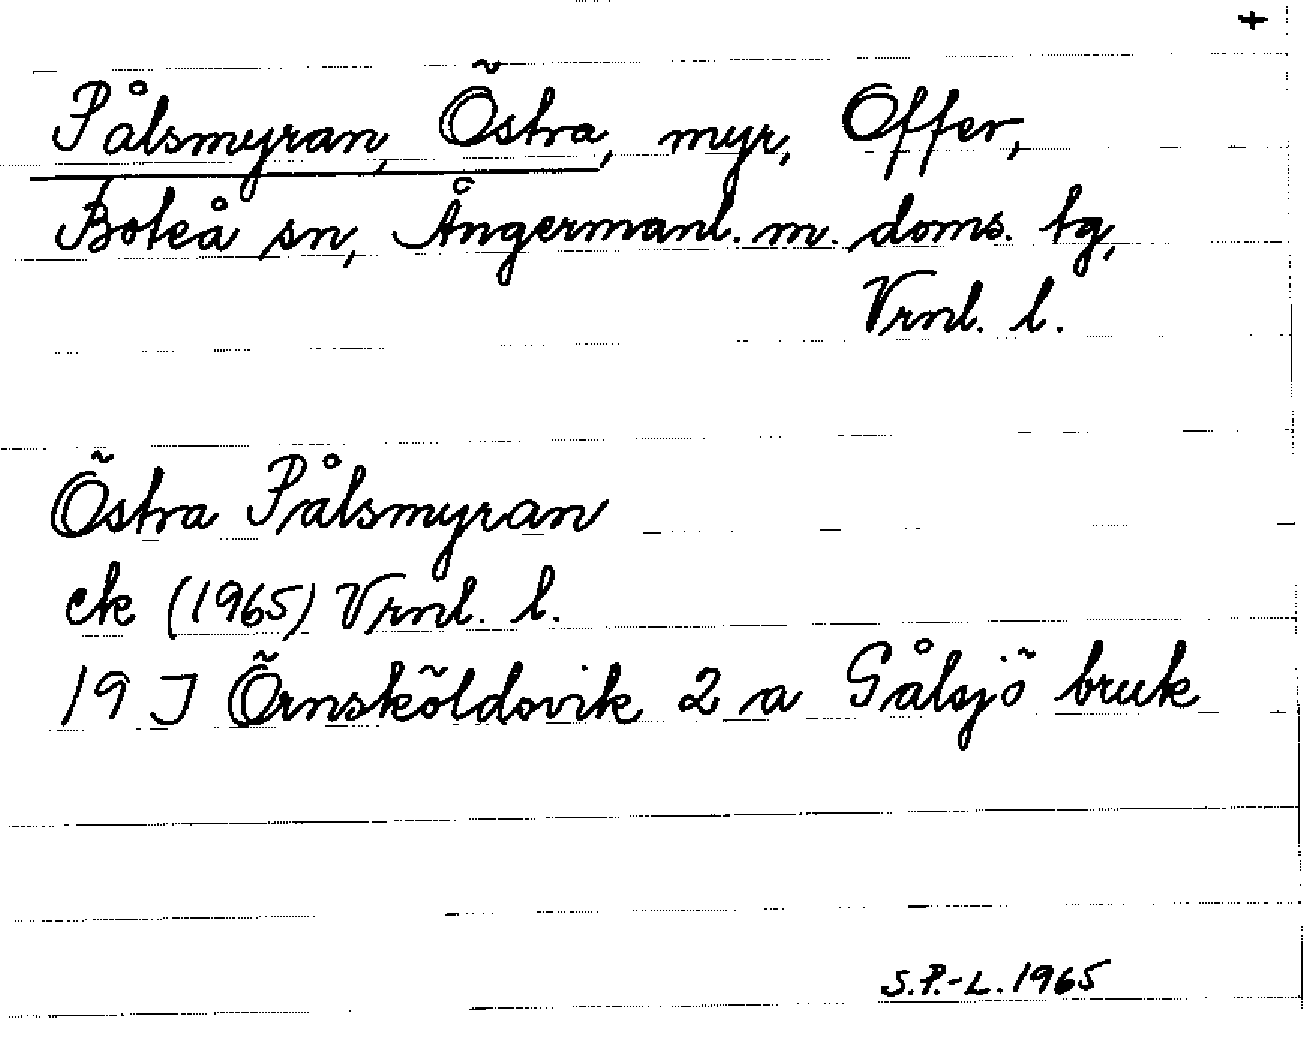 +
Pålsmyran, Östra, myr, Offer,
Boteå sn, Ångermanl. m. doms. tg,
Vrnl. l.
Östra Pålsmyran
ek (1965) Vrnl. l.
19 J Örnsköldsvik 2 a Gålsjö bruk
S.P.-L. 1965